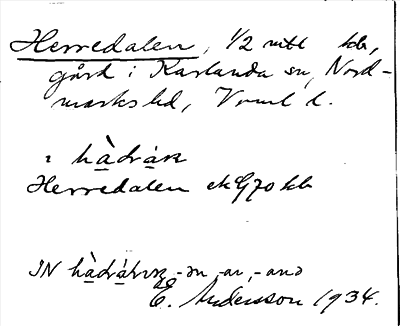 Herredalen, 1/2 mtl kb,
gård i Karlanda sn, Nord-
marks hd, Vrml l.
Herredalen ek G70 kb
IN -ən, -ar, -anə
E. Andersson 1934.